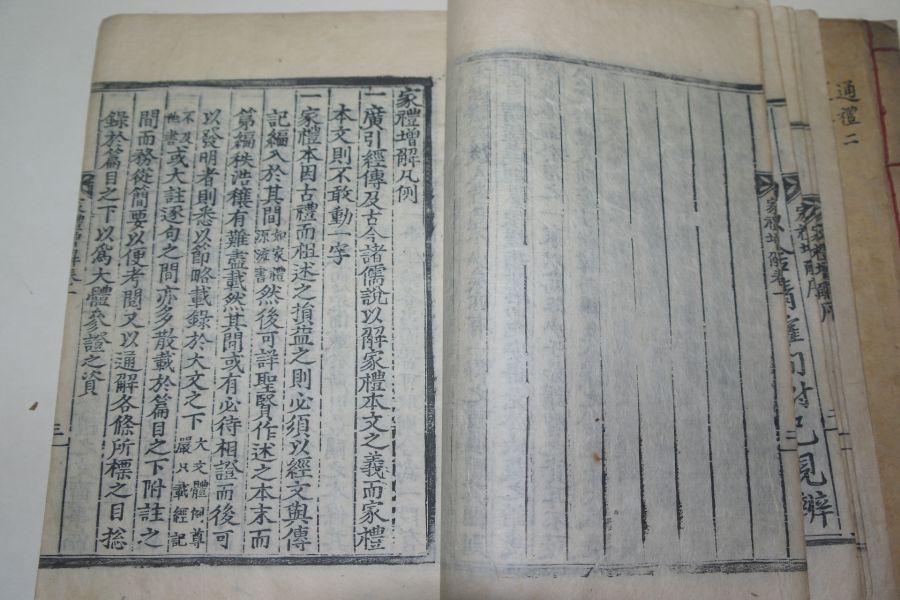 通禮二
家禮增解序
家禮增解序
家禮增解卷一
家禮增解凡例
一廣引經傳及古今諸儒說以解家禮本文之義而家禮
本文則不敢動一字
一家禮本因古禮而祖述之損益之則必須以經文與傳
記編入於其間如家禮源流書然後可詳聖賢作述之本末而
第編秩浩穰有難盡載然其間或有必待相證而後可
以發明者則悉以節略載錄於大文之下大文體例尊嚴只載經記
不及他書或大註逐句之間亦多散載於篇目之下附註之
間而務從簡要以便考閱又以通解各條所標之目摠
錄於篇目之下以爲大體參證之資